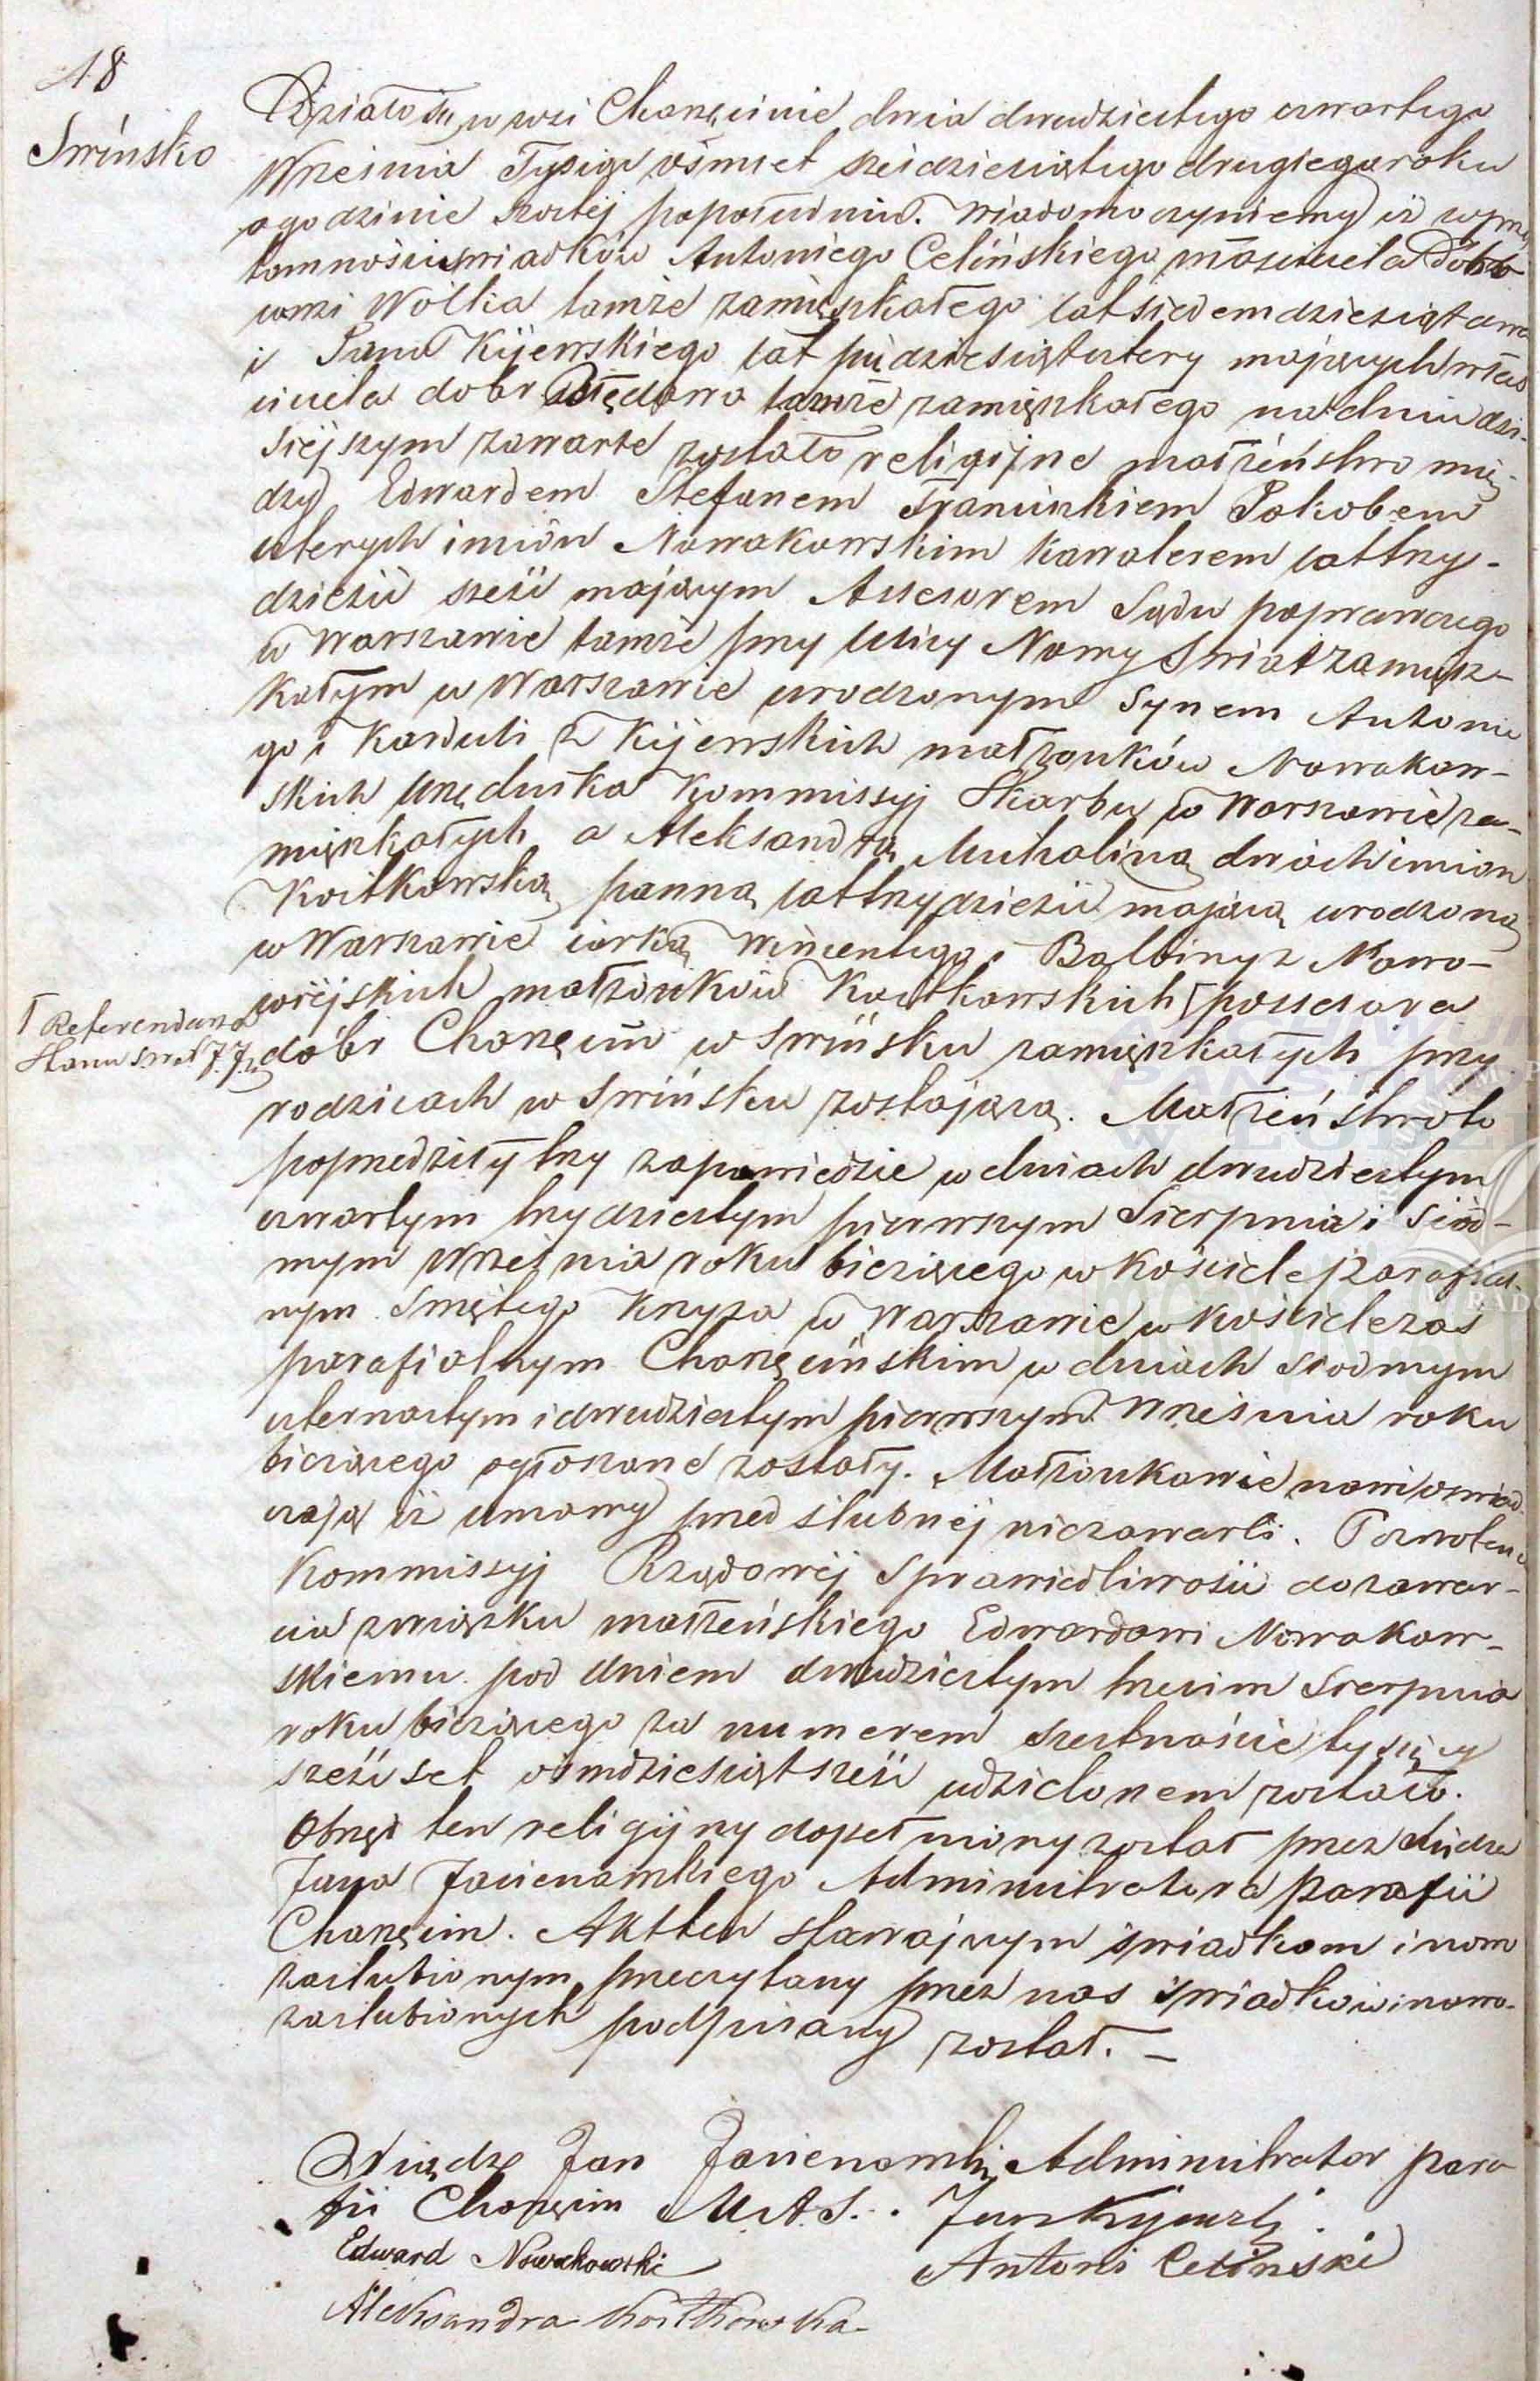 18
Swińsko
Działo się w wsi Charzęcinie dnia dwudziestego czwartego
Września Tysiąc ośmset sześdziesiątego drugiego roku
o godzinie szóstej popołudniu. Wiadomo czyniemy iż w przy
tomności świadków Antoniego Celińskiego właściciela Dóbr
wsi Wólka tamże zamięszkałego lat siedemdziesiąt
i Jana Kijewskiego lat piędziesiąt cztery mających właś
ciciela dobr tamże zamięszkałego na dniu dzi-
siejszym zawarte zostało religijne małżeństwo mię
dzy Edwardem Stefanem Franciszkiem Jakobem
czterych imion Nowakowskim kawalerem lat trzy-
dzieści sześć mającym Assesorem Sądu poprawczego
w Warszawie tamże przy Ulicy Nowy Swiat zamięsz-
kałym w Warszawie urodzonym synem Antonie
go i Karduli z Kijewskich małżonków Nowakow-
skich urzędnika Kommissyj Skarbu w Warszawie za-
mięszkałych a Aleksandrą Michaliną dwóch imion
Koitkowską panną lat trzydzieści mającą urodzoną
w Warszawie córką Wincentego i Balbiny z Nowo-
wiejskich małżonków Koitkowskich ⌈ possesora
⌈ Referendarza
Stanu
dóbr Charzęcin w Swińsku zamięszkałych przy
rodzicach w Swińsku zostającą. Małżeństwo to
poprzedziły trzy zapowiedzie w dniach dwudziestym
czwartym trzydziestym pierwszym Sierpnia i Siód-
mym Września roku bieżącego w kościele parafial-
nym Swiętego Krzyża w Warszawie w kościele zaś
parafialnym Charzęcińskim w dniach siodmym
czternastym i dwudziestym pierwszym Września roku
bieżącego ogłoszone zostały. Małżonkowie nowi oświad-
czają iż umowy przed ślubnéj niezawarli. Pozwolenie
Kommissyj Rządowéj Sprawiedliwości do zawar-
cia związku małżeńskiego Edwardowi Nowakow-
skiemu pod dniem dwudziestym trzecim Sierpnia
roku bieżącego za numerem szesnaście tysięcy
sześćset ośmdziesiąt sześć udzielonem zostało.
Obrzęd ten religijny dopełniony został przez Xiędza
Jana Administratora parafii
Charzęcin. Akt ten stawającym świadkom i nowo
zaślubionym przeczytany przez nas świadków i nowo-
zaślubionych podpisany został. –
Xiądz Jan Administrator para
fii Charzęcin U.A.S.. Jan Kijewski.
Edward Nowakowski
Antoni Celinski
Aleksandra Koitkowska